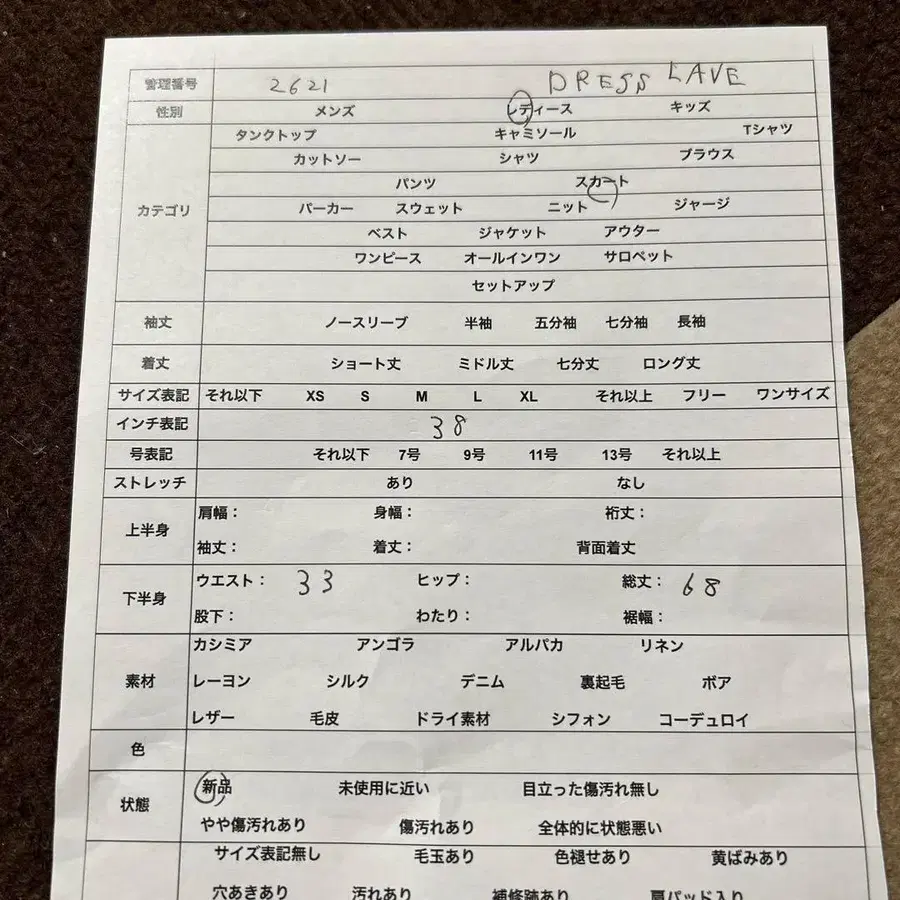 管理番号 2621 DRESS LAVE
性別 メンズ レディース キッズ
タンクトップ キャミソール Tシャツ
カットソー シャツ ブラウス
パンツ スカート
カテゴリ パーカー スウェット ニット ジャージ
ベスト ジャケット アウター
ワンピース オールインワン サロペット
セットアップ
袖丈 ノースリーブ 半袖 五分袖 七分袖 長袖
着丈 ショート丈 ミドル丈 七分丈 ロング丈
サイズ表記 それ以下 XS S M L XL それ以上 フリー ワンサイズ
インチ表記 38
号表記 それ以下 7号 9号 11号 13号 それ以上
ストレッチ あり なし
上半身 肩幅： 身幅： 裄丈：
袖丈： 着丈： 背面着丈
下半身 ウエスト： 33 ヒップ： 総丈： 68
股下： わたり： 裾幅：
カシミア アンゴラ アルパカ リネン
素材 レーヨン シルク デニム 裏起毛 ボア
レザー 毛皮 ドライ素材 シフォン コーデュロイ
色
状態 新品 未使用に近い 目立った傷汚れ無し
やや傷汚れあり 傷汚れあり 全体的に状態悪い
サイズ表記無し 毛玉あり 色褪せあり 黄ばみあり
穴あきあり 汚れあり 補修跡あり 肩パッド入り